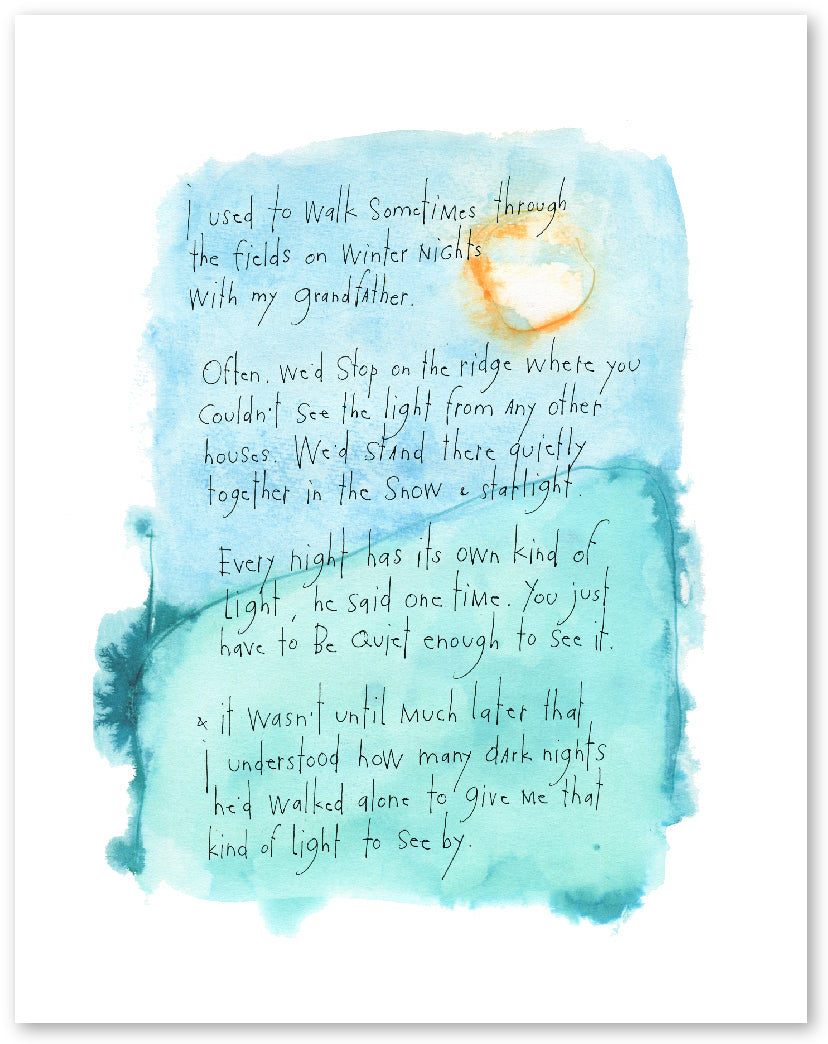 i used to walk sometimes through
the fields on winter nights
with my grandfather.
Often, we'd stop on the ridge where you
couldn't see the light from any other
houses. We'd stand there quietly
together in the snow & starlight.
Every night has its own kind of
light, he said one time. You just
have to be quiet enough to see it.
& it wasn't until much later that
i understood how many dark nights
he'd walked alone to give me that
kind of light to see by.